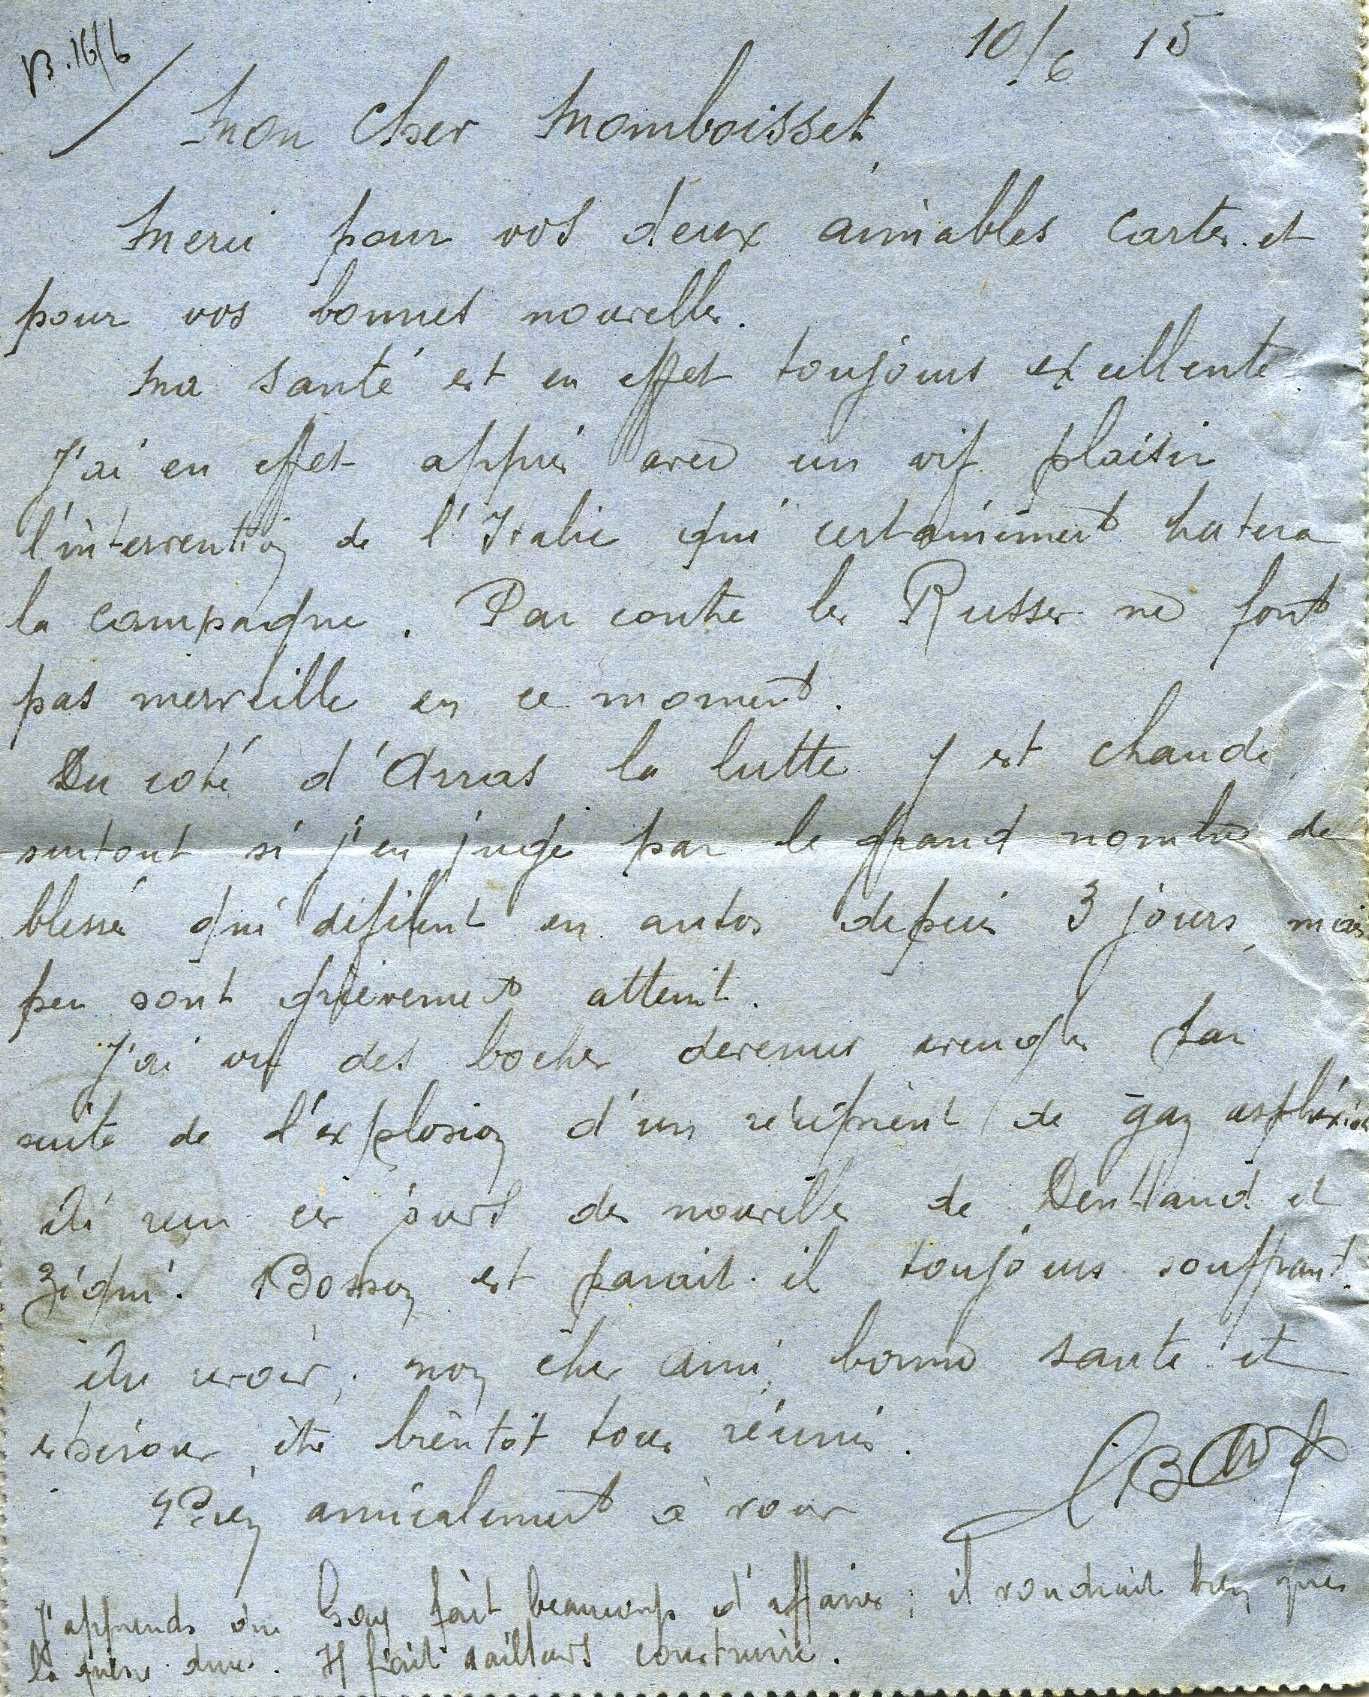 R. 16/6
10/6 15
Mon Cher Momboisset,
Merci pour vos deux aimables cartes et
pour vos bonnes nouvelles.
Ma santé est en effet toujours excellente
J'ai en effet appris avec un vif plaisir
l'intervention de l'Italie qui certainement hatera
la campagne. Par contre les Russes ne font
pas merveille en ce moment.
Du coté d'Arras la lutte y est chaude
surtout si j'en juge par le grand nombre de
blessés qui défilent en autos depuis 3 jours, mais
peu sont grièvement atteint.
J'ai vu des boches devenus aveugles par
suite de l'explosion d'un récipient de gaz asphyxia
Ai reçu ces jours des nouvelles de Dentraud et
Ziégui. Bosson est parait-il toujours souffrant.
Au revoir, mon cher ami, bonne santé et
espérons être bientôt tous réunis.
Bien amicalement à vous
J'apprends que fait beaucoup d'affaires; il voudrait bien que
la guerre dure. Il fait d'ailleurs construire.